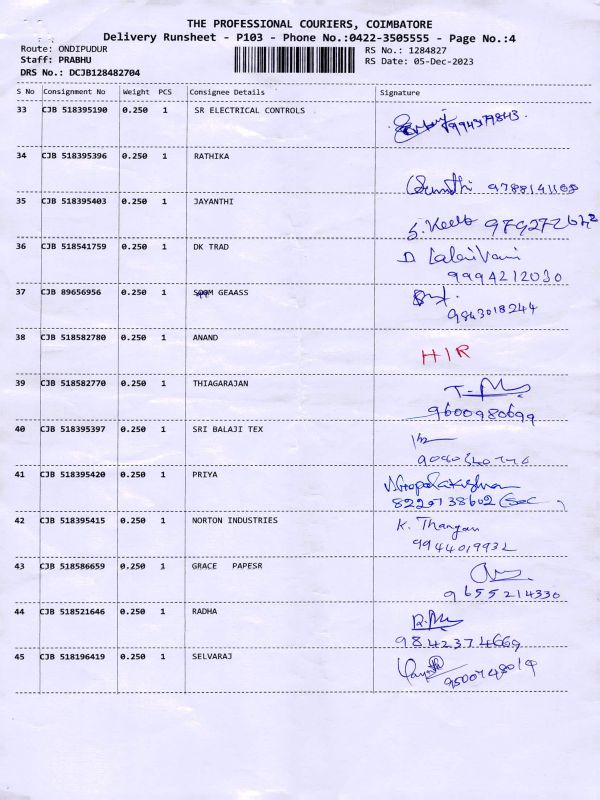 THE PROFESSIONAL COURIERS, COIMBATORE
Delivery Runsheet - P103 - Phone No.:0422-3505555 - Page No.:4
Route: ONDIPUDUR RS No.: 1284827
Staff: PRABHU RS Date: 05-Dec-2023
DRS No.: DCJB128482704
S No Consignment No Weight PCS Consignee Details Signature
33 CJB 518395190 0.250 1 SR ELECTRICAL CONTROLS
34 CJB 518395396 0.250 1 RATHIKA
35 CJB 518395403 0.250 1 JAYANTHI
36 CJB 518541759 0.250 1 DK TRAD D Lalai Vani
9994212030
37 CJB 89656956 0.250 1 GEAASS
9843018244
38 CJB 518582780 0.250 1 ANAND HIR
39 CJB 518582770 0.250 1 THIAGARAJAN
9600980699
40 CJB 518395397 0.250 1 SRI BALAJI TEX
41 CJB 518395420 0.250 1 PRIYA
8220738602 (Sec
42 CJB 518395415 0.250 1 NORTON INDUSTRIES K. Thangan
9944019932
43 CJB 518586659 0.250 1 GRACE PAPESR
9655214330
44 CJB 518521646 0.250 1 RADHA
9842374669
45 CJB 518196419 0.250 1 SELVARAJ